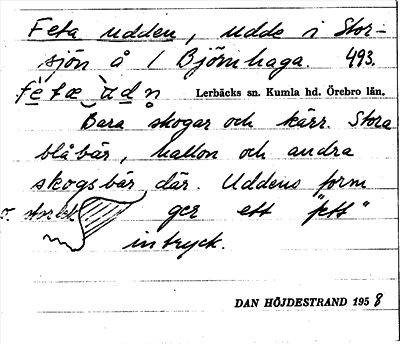 Feta udden, udde i Stor-
sjön å 1 Björnhaga. 493.
fe̱tæ u̱dn̥
Lerbäcks sn. Kumla hd. Örebro län.
Bara skogar och kärr. Stora
blåbär, hallon och andra
skogsbär där. Uddens form
o. storlek ger ett "fett"
intryck.
DAN HÖJDESTRAND 1958